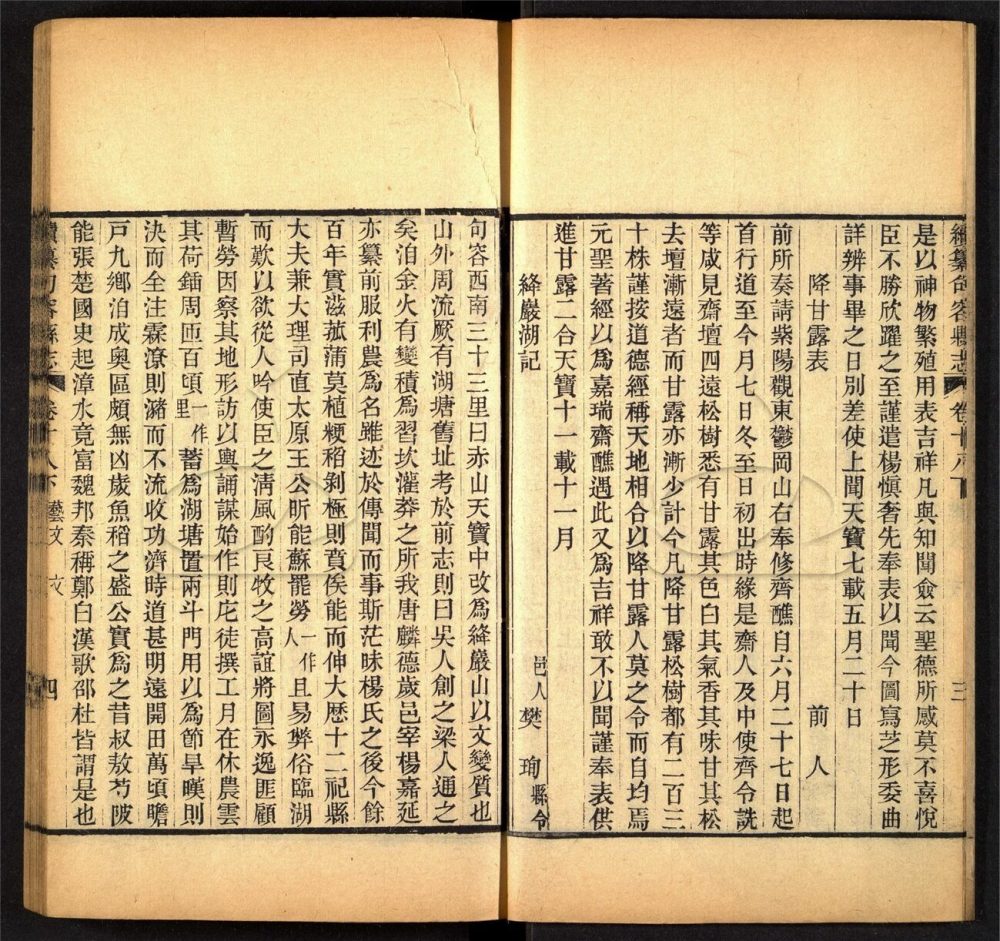 續纂句容縣志 卷十八下 三
是以神物繁殖用表吉祥凡與知聞僉云聖德所感莫不喜悅
臣不勝欣躍之至謹遣楊愼奢先奉表以聞今圖寫芝形委曲
詳辨事畢之日別差使上聞天寶七載五月二十日
降甘露表 前人
前所奏請紫陽觀東鬱岡山右奉修齊醮自六月二十七日起
首行道至今月七日冬至日初出時緣是齋人及中使齊令詵
等咸見齋壇四遠松樹悉有甘露其色白其氣香其味甘其松
去壇漸遠者而甘露亦漸少計今凡降甘露松樹都有二百三
十株謹按道德經稱天地相合以降甘露人莫之令而自均焉
元聖著經以爲嘉瑞齋醮遇此又爲吉祥敢不以聞謹奉表供
進甘露二合天寶十一載十一月
絳巖湖記 邑人樊珣縣令
句容西南三十三里曰赤山天寶中改爲絳巖山以文變質也
山外周流厥有湖塘舊址考於前志則曰吳人創之梁人通之
矣洎金火有變積爲習坎灌莽之所我唐麟德歲邑宰楊嘉延
亦纂前服利農爲名雖迹於傳聞而事斯茫昧楊氏之後今餘
百年實滋菰蒲莫植粳稻剝極則賁俟能而伸大歷十二祀縣
大夫兼大理司直太原王公昕能蘇罷勞一作人且易弊俗臨湖
而歎以欲從人吟使臣之清風酌良牧之高誼將圖永逸匪顧
暫勞因察其地形訪以輿誦謀始作則庀徒撰工月在休農雲
其荷鍤周匝百頃一作里蓄爲湖塘置兩斗門用以爲節旱暵則
決而全注霖潦則瀦而不流收功濟時道甚明遠開田萬頃贍
戸九鄉洎成奥區頗無凶歲魚稻之盛公實爲之昔叔敖芍陂
能張楚國史起漳水竟富魏邦秦稱鄭白漢歌邵杜皆謂是也
續纂句容縣志 卷十八下 藝文 文 四